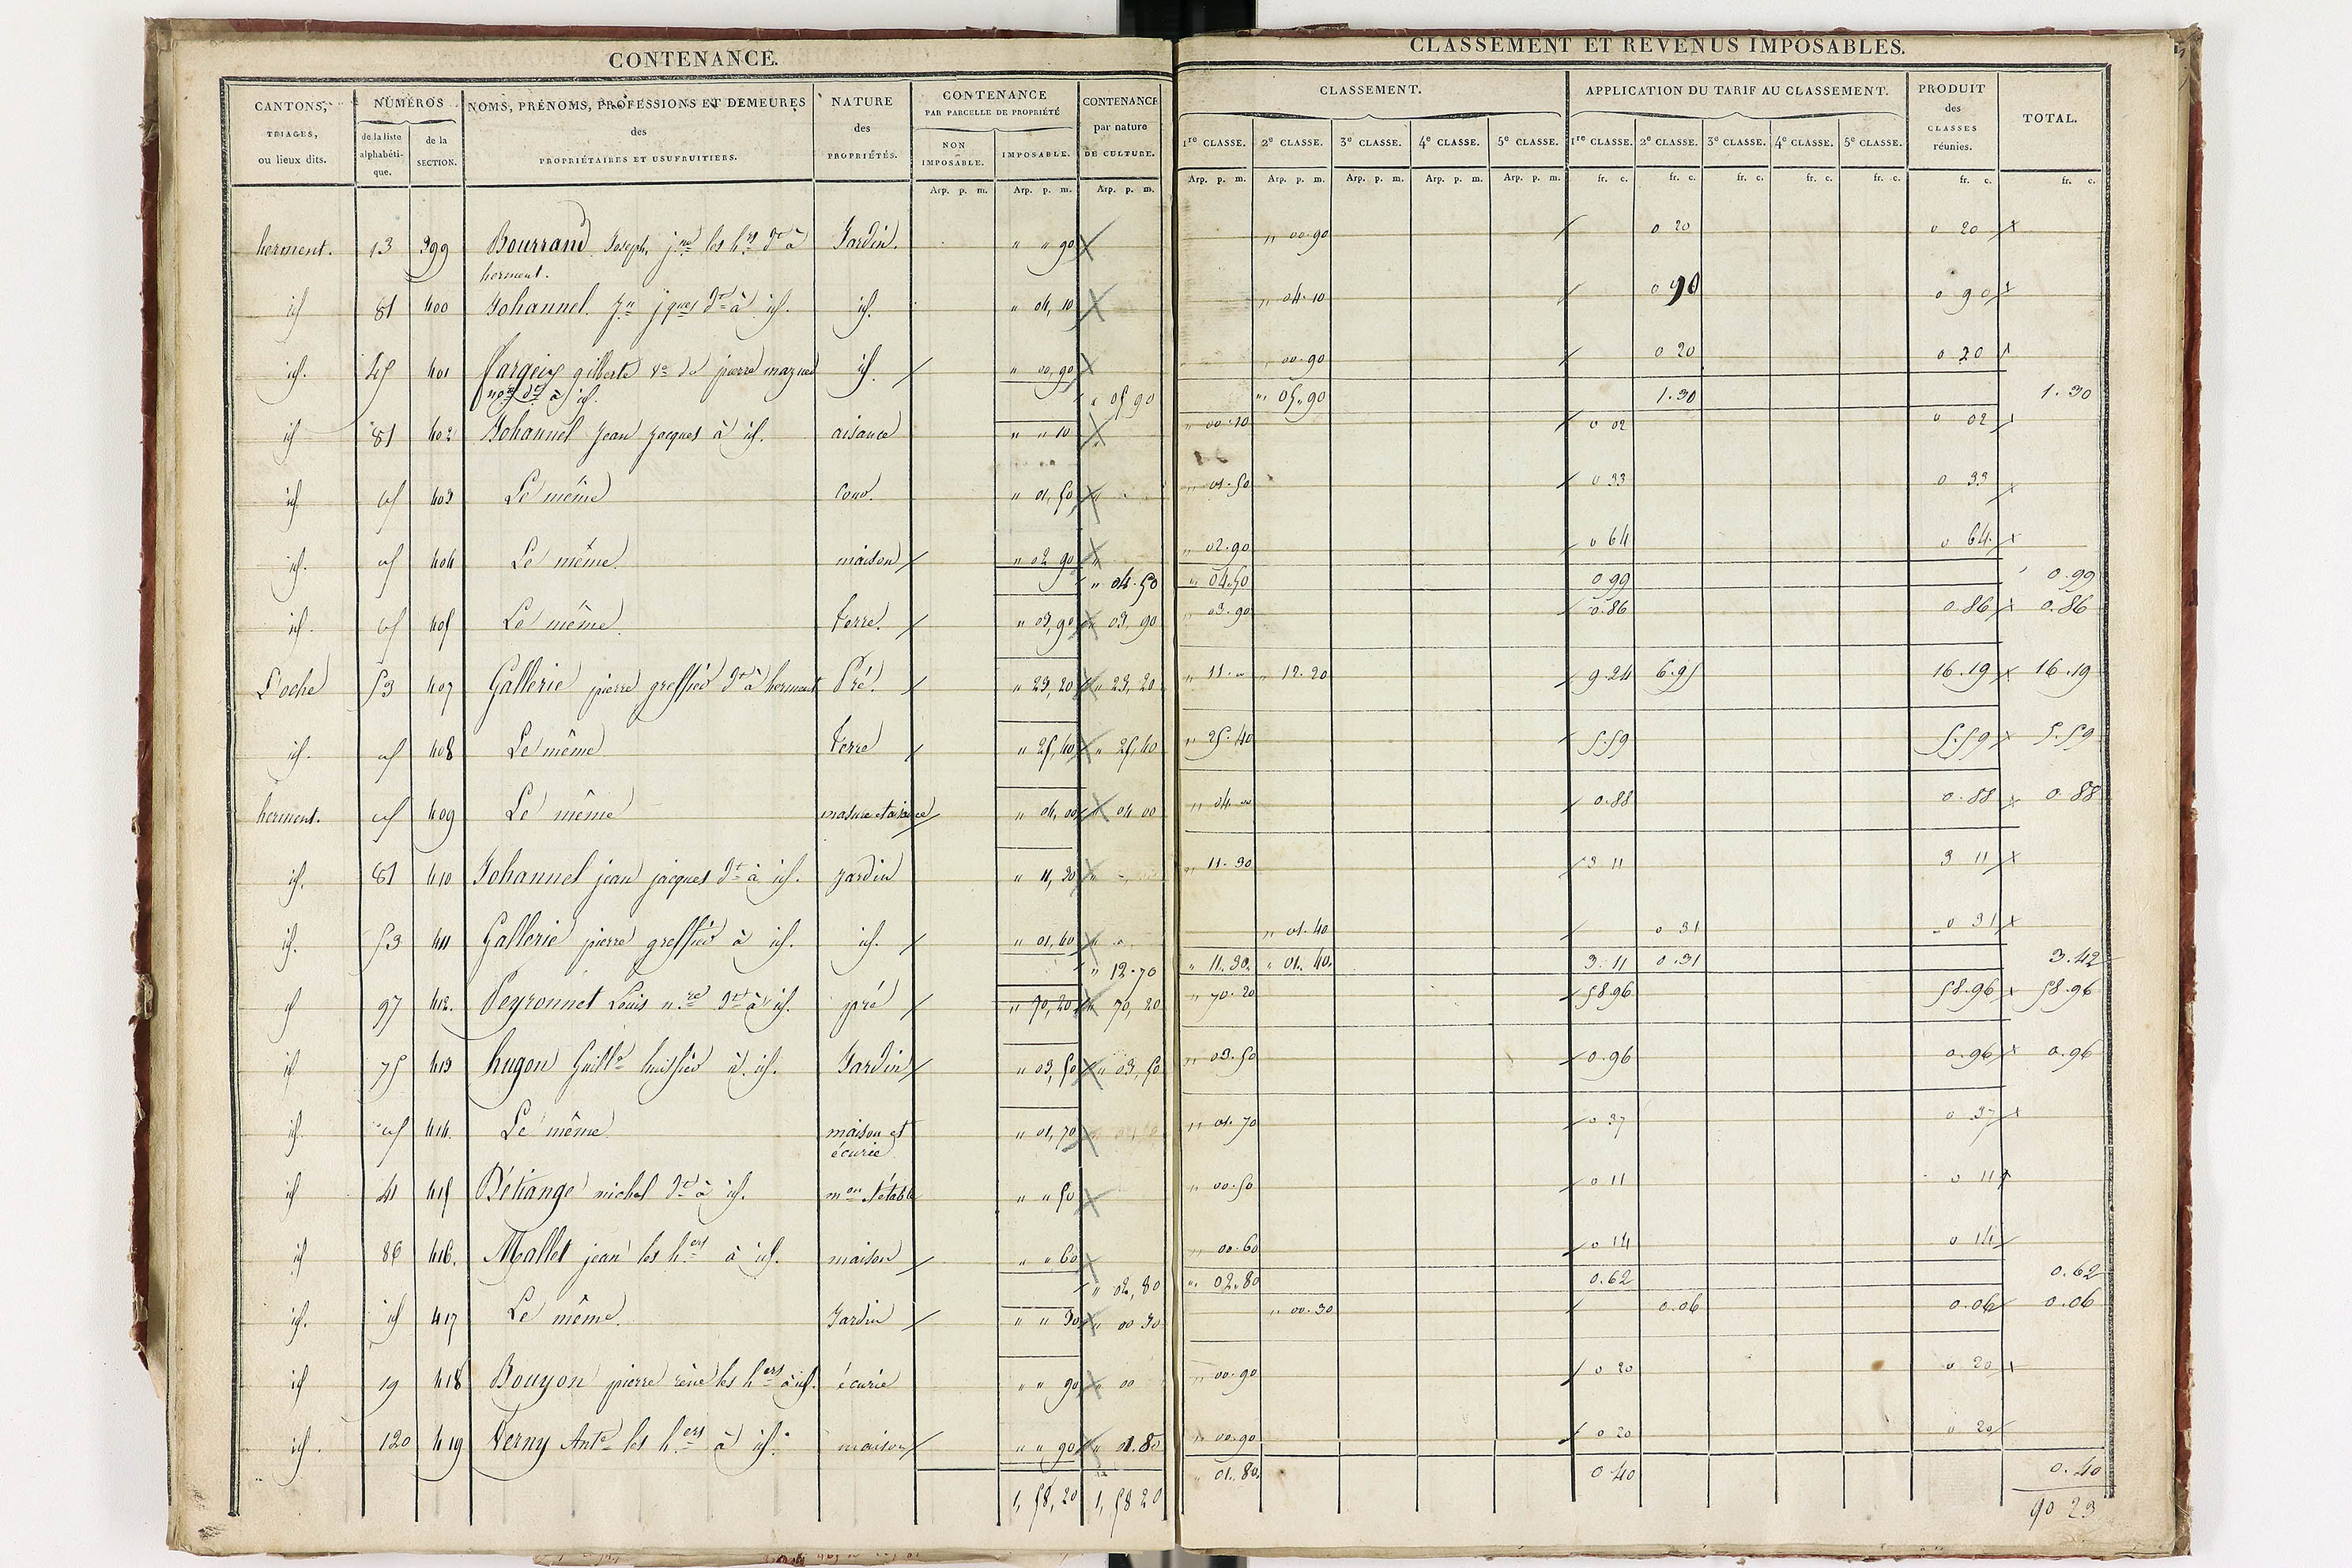 CONTENANCE.
CANTONS, TRIAGES, ou lieux dits.
NUMÉROS
de la liste alphabétique.
de la SECTION.
NOMS, PRÉNOMS, PROFESSIONS ET DEMEURES des PROPRIÉTAIRES ET USUFRUITIERS.
NATURE des PROPRIÉTÉS.
CONTENANCE PAR PARCELLE DE PROPRIÉTÉ
NON IMPOSABLE.
IMPOSABLE.
CONTENANCE par nature DE CULTURE.
Arp. p. m. Arp. p. m. Arp. p. m.
herment. 13 399 Bourrand Joseph, les h.rs d.t à Jardin. " " 90
herment.
id 81 400 Johannel d.t à id. id. " 04, 10
id. 45 401 gilberte pierre id. " 00, 90
à id. " 05 90
id 81 402 Johannel Jean Jacques à id. aisance " " 10
id id 403 Le même " 01, 50
id. id 404 Le même maison " 02 90
" 04. 50
id. id 405 Le même terre. " 03, 90 " 03, 90
L'oche 53 407 Gallerie pierre greffier d.t à herment Pré. " 23, 20 " 23, 20
id. id 408 Le même terre " 25, 40 " 25, 40
herment. id 409 Le même masure et aisance " 04, 00 " 04 00
id. 81 410 Johannel jean jacques d.t à id. jardin " 11, 30
id. 53 411 Gallerie pierre greffier à id. id. " 01, 40
" 12. 70
id 97 412. Peyronnet Louis n.re d.t à id. pré " 70, 20 " 70, 20
id 75 413 hugon Guill.e huissier à id. Jardin " 03, 50 " 03, 50
id. id 414. Le même maison et écurie " 01, 70
id 41 415 Bétiange michel d.t à id. m.on & étable " " 50
id 86 416. Mallet jean les h.ers à id. maison " " 60
" 02, 80
id. id 417 Le même. Jardin " " 30 " 00 30
id 19 418 Bouyon pierre les h.ers à id. écurie " " 90
id. 120 419 Verny Ant.e les h.ers à id. maison " " 90 " 01. 80
1, 58, 20 1, 58 20
CLASSEMENT ET REVENUS IMPOSABLES.
CLASSEMENT.
APPLICATION DU TARIF AU CLASSEMENT.
PRODUIT des CLASSES réunies.
TOTAL.
1re CLASSE. 2e CLASSE. 3e CLASSE. 4e CLASSE. 5e CLASSE. 1re CLASSE. 2e CLASSE. 3e CLASSE. 4e CLASSE. 5e CLASSE.
Arp. p. m. Arp. p. m. Arp. p. m. Arp. p. m. Arp. p. m. fr. c. fr. c. fr. c. fr. c. fr. c. fr. c. fr. c.
" 00.90 0 20 0 20
" 04.10 0 90 0 90
" 00.90 0 20 0 20
" 05.90 1.30 1.30
" 00.10 0 02 0 02
" 01.50 0 33 0 33
" 02.90 0 64 0 64
" 04.50 0 99 0.99
" 03.90 0.86 0.86 0.86
" 11. " " 12.20 9.24 6.95 16.19 16.19
" 25.40 5.59 5.59 5.59
" 04. " 0.88 0.88 0.88
" 11.30 3 11 3 11
" 01.40 0 31 0 31
" 11.30 " 01.40 3.11 0.31 3.42
" 70.20 58.96 58.96 58.96
" 03.50 0.96 0.96 0.96
" 01.70 0 37 0 37
" 00.50 0 11 0 11
" 00.60 0 14 0 14
" 02.80 0.62 0.62
" 00.30 0.06 0.06 0.06
" 00.90 0 20 0 20
" 00.90 0 20 0 20
" 01.80 0 40 0.40
90 23